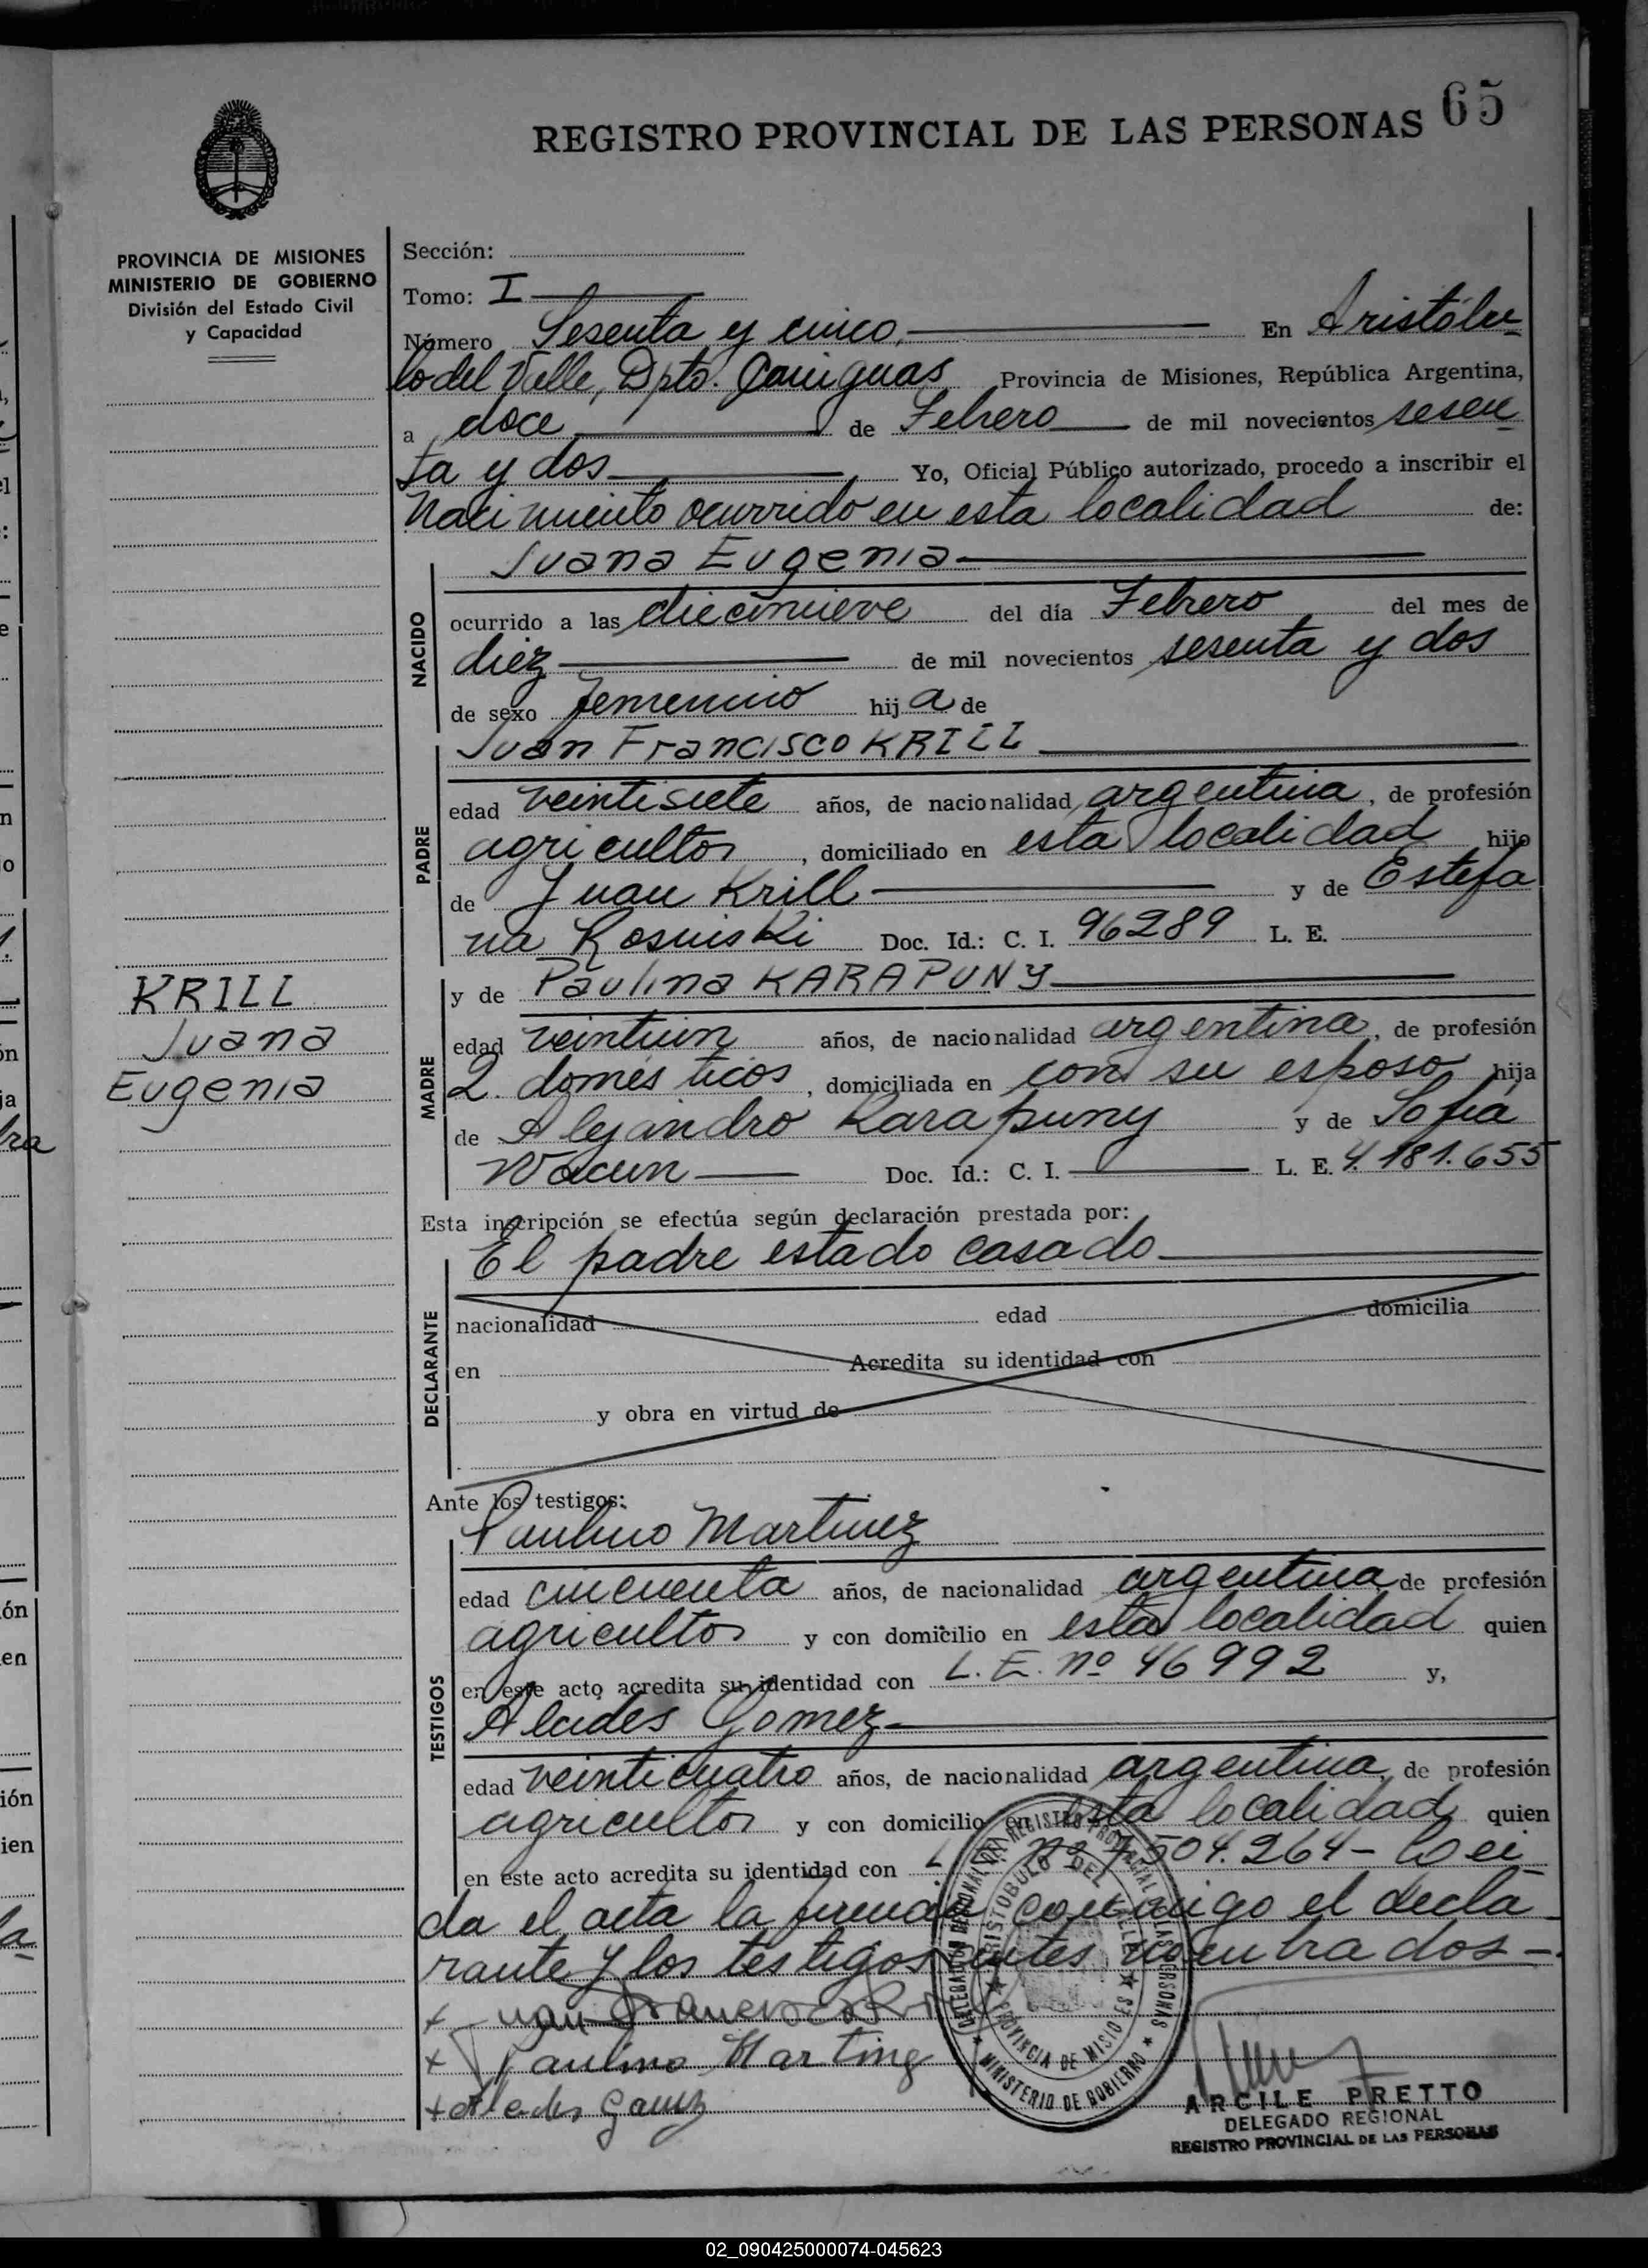 REGISTRO PROVINCIAL DE LAS PERSONAS 65
PROVINCIA DE MISIONES
MINISTERIO DE GOBIERNO
División del Estado Civil
y Capacidad
KRILL
Juana
Eugenia
Sección:
Tomo: I
Número Sesenta y cinco. En Aristóbu
lo del Valle, Dpto. Cainguas Provincia de Misiones, República Argentina,
a doce de Febrero de mil novecientos sesen
ta y dos Yo, Oficial Público autorizado, procedo a inscribir el
Nacimiento ocurrido en esta localidad de:
NACIDO
Juana Eugenia
ocurrido a las diecinueve del día Febrero del mes de
diez de mil novecientos sesenta y dos
de sexo femenino hija de
PADRE
Juan Francisco KRILL
edad veintisiete años, de nacionalidad argentina, de profesión
agricultor, domiciliado en esta localidad hijo
de Juan Krill y de Estefa
na Rosniski Doc. Id.: C. I. 96289 L. E.
MADRE
y de Paulina KARAPUNY
edad veintiun años, de nacionalidad argentina, de profesión
Q. domésticos, domiciliada en con su esposo hija
de Alejandro Karapuny y de Sofia
Wacun Doc. Id.: C. I. L. E. 4.181.655
Esta inscripción se efectúa según declaración prestada por:
DECLARANTE
El padre estado casado
nacionalidad edad domicilia
en Acredita su identidad con
y obra en virtud de
Ante los testigos:
TESTIGOS
Paulino Martinez
edad cincuenta años, de nacionalidad argentina, de profesión
agricultor y con domicilio en esta localidad quien
en este acto acredita su identidad con L. E. nº 46992 y,
Alcides Gomez
edad veinticuatro años, de nacionalidad argentina, de profesión
agricultor y con domicilio en esta localidad quien
en este acto acredita su identidad con nº 7.504.264 - Leí
da el acta la firman conmigo el decla
rante y los testigos antes nombrados -
x Juan Francisco Kri
x Paulino Martinez
x Alcides Gomez
DELEGACION REGIONAL DEL REGISTRO PROVINCIAL DE LAS PERSONAS
ARISTOBULO DEL VALLE
PROVINCIA DE MISIONES
MINISTERIO DE GOBIERNO
ARCILE PRETTO
DELEGADO REGIONAL
REGISTRO PROVINCIAL DE LAS PERSONAS
02_090425000074-045623